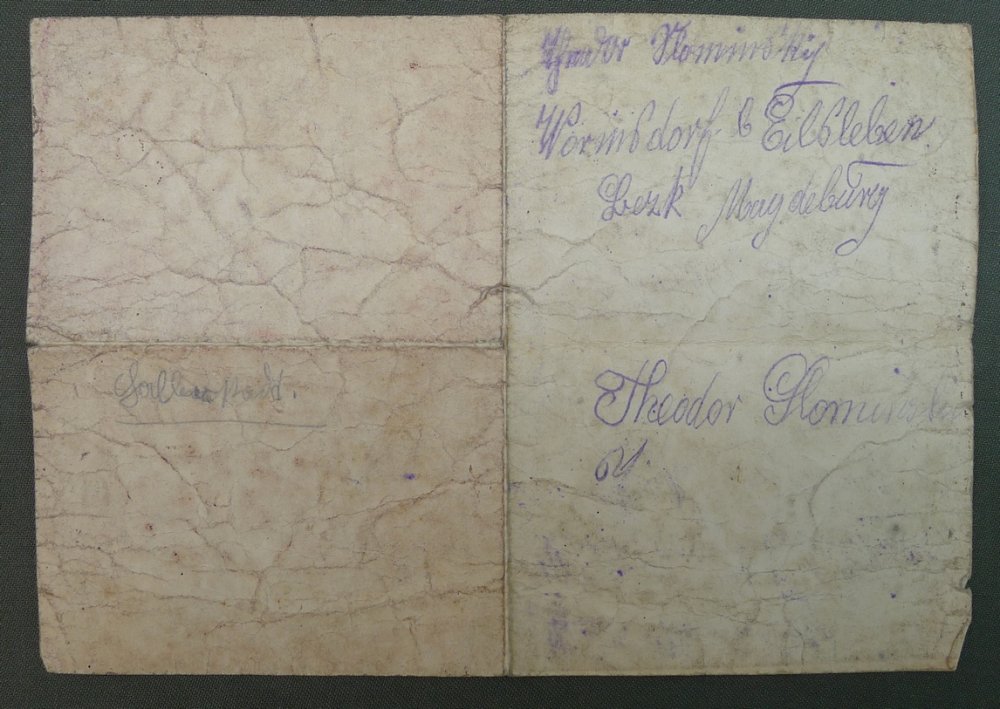 Theodor Slominsky
Wormsdorf b Eilsleben.
Bezk Magdeburg
Theodor Slominsky